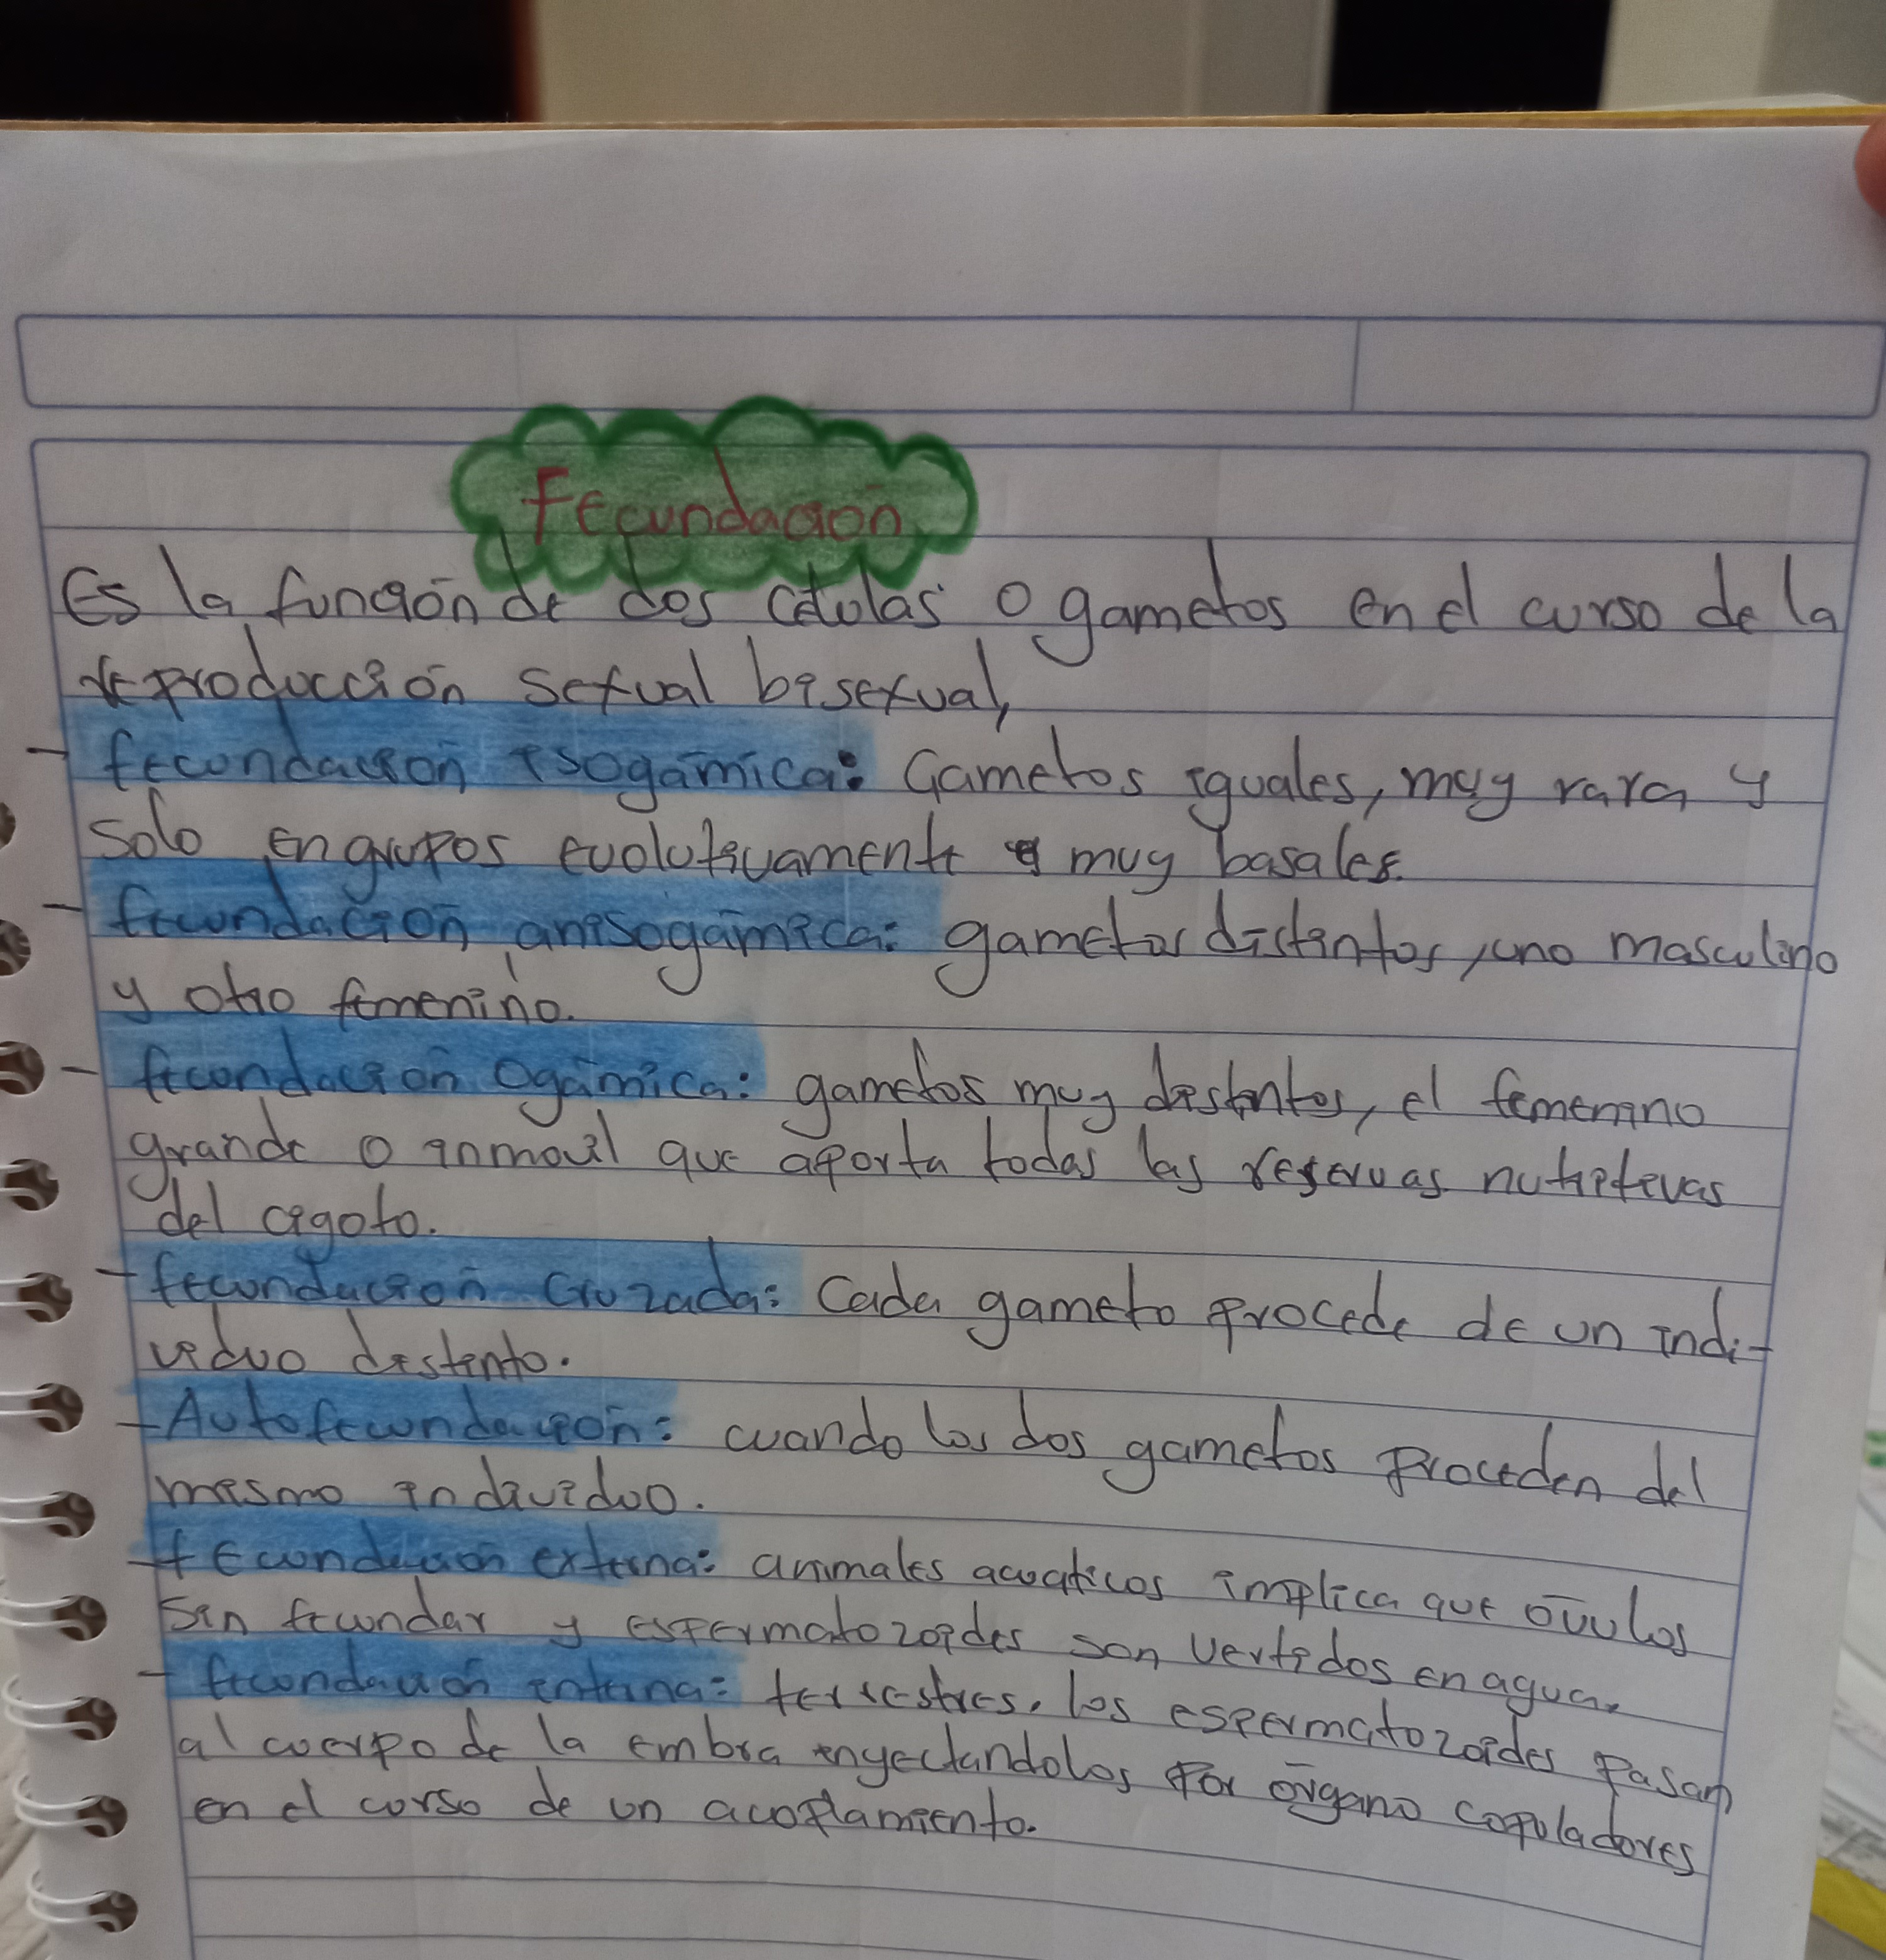 Fecundación
Es la función de dos células o gametos en el curso de la
reproducción sexual bisexual,
- fecundación isogámica: Gametos iguales, muy rara y
solo en grupos evolutivamente muy basales.
- fecundación anisogámica: gametos distintos, uno masculino
y otro femenino.
- fecundación ogámica: gametos muy distintos, el femenino
grande o inmovil que aporta todas las reservas nutritivas
del cigoto.
- fecundación cruzada: Cada gameto procede de un indi-
viduo distinto.
- Autofecundación: cuando los dos gametos proceden del
mismo individuo.
- fecundación externa: animales acuaticos implica que óvulos
sin fecundar y espermatozoides son vertidos en agua.
- fecundación interna: terrestres. los espermatozoides pasan
al cuerpo de la embra inyectandolos por órgano copuladores
en el curso de un acoplamiento.